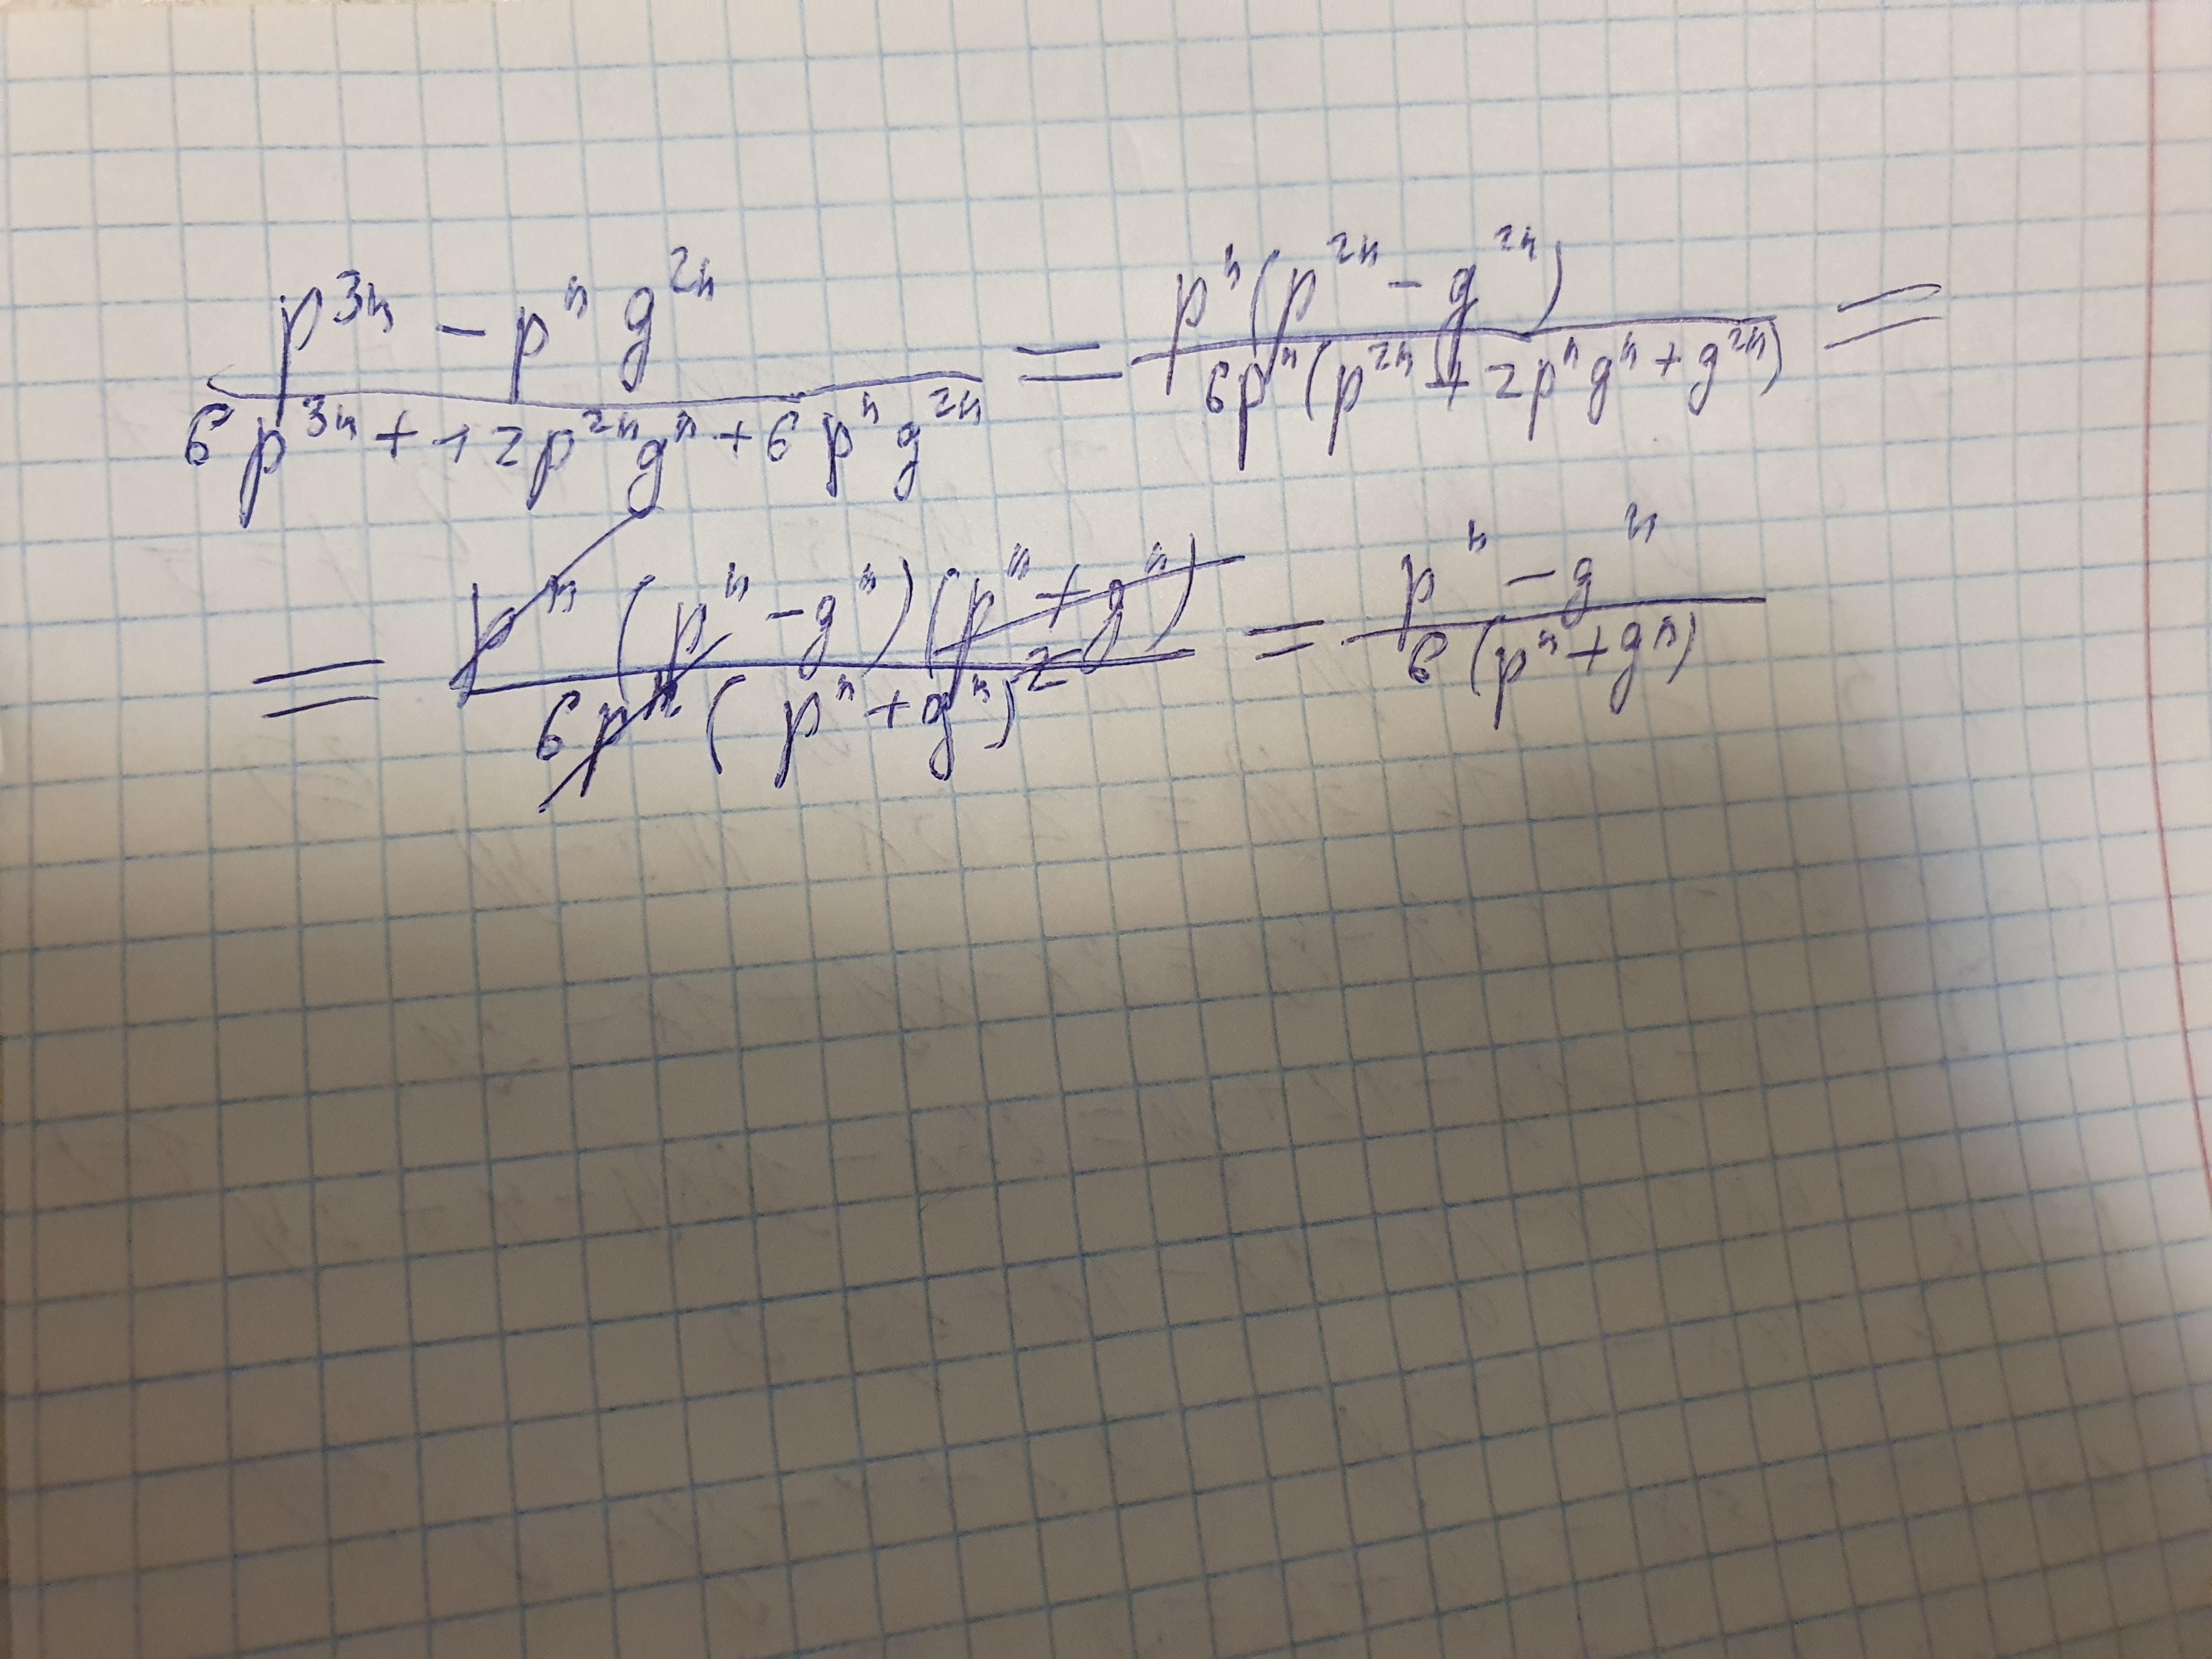 (p^{3n} - p^n g^{2n}) / (6p^{3n} + 12p^{2n}g^n + 6p^n g^{2n}) = p^n(p^{2n} - g^{2n}) / 6p^n(p^{2n} + 2p^n g^n + g^{2n}) =
= p^n(p^n - g^n)(p^n + g^n) / 6p^n(p^n + g^n)^2 = (p^n - g^n) / 6(p^n + g^n)